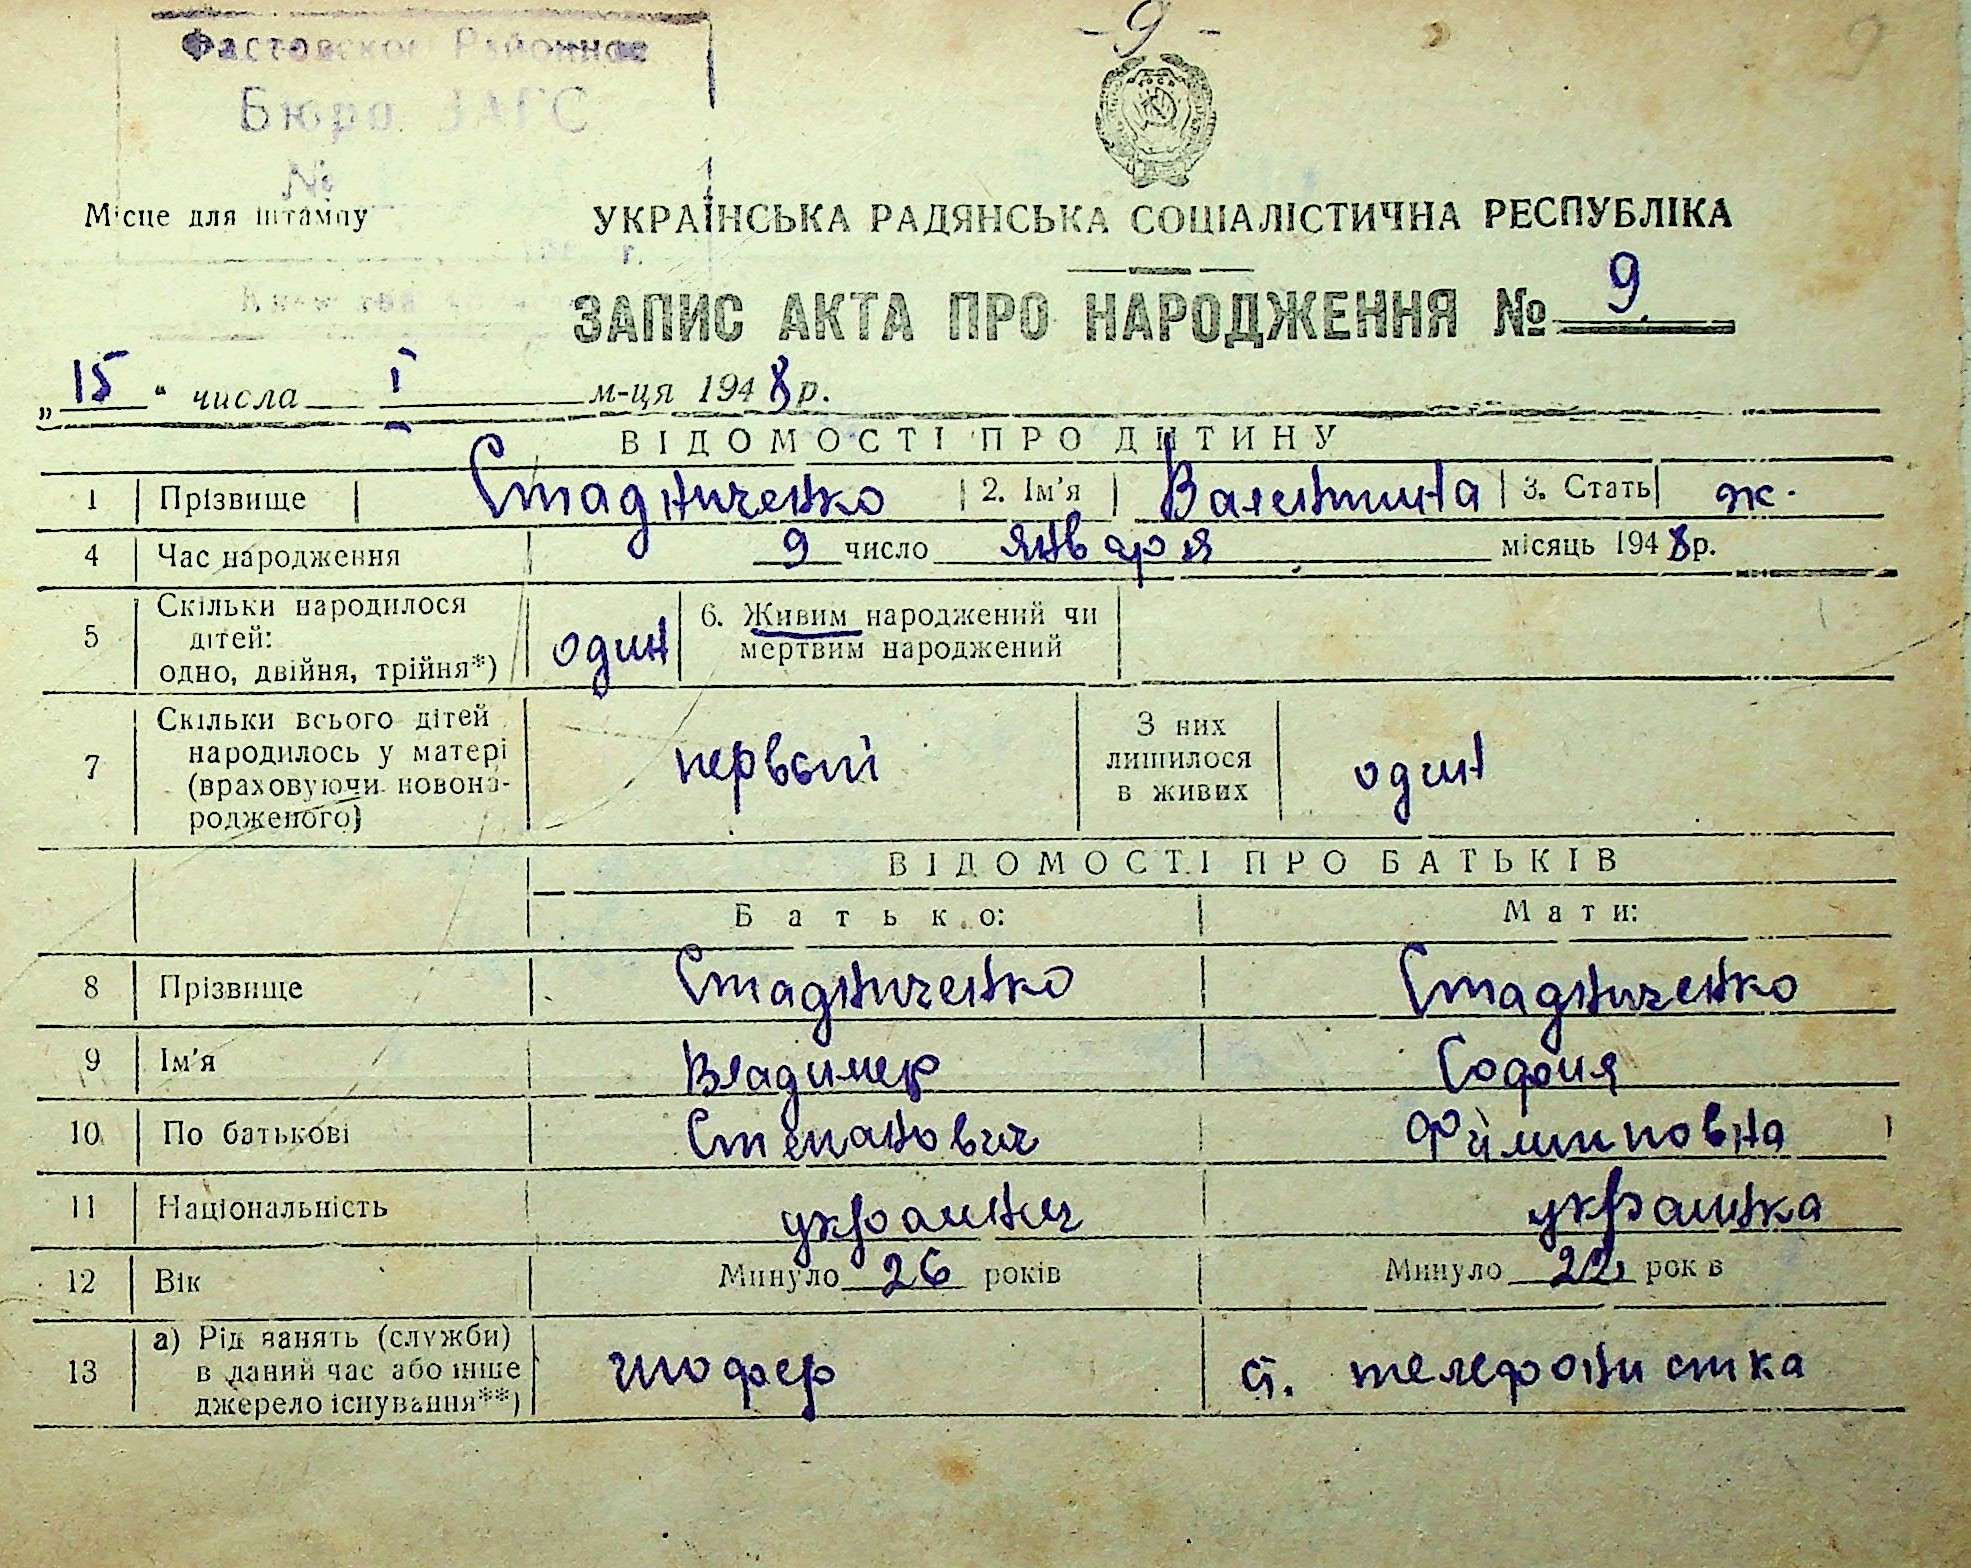 - 9 -
9
Фастовское Районное
Бюро ЗАГС
№
Місце для штампу
г.
УКРАЇНСЬКА РАДЯНСЬКА СОЦІАЛІСТИЧНА РЕСПУБЛІКА
ЗАПИС АКТА ПРО НАРОДЖЕННЯ № 9
„15“ числа I м-ця 1948 р.
ВІДОМОСТІ ПРО ДИТИНУ
1 Прізвище Стадниченко 2. Ім'я Валентина 3. Стать ж.
4 Час народження 9 число января місяць 1948 р.
5 Скільки народилося дітей: одно, двійня, трійня*) один 6. Живим народжений чи мертвим народжений
7 Скільки всього дітей народилось у матері (враховуючи новонародженого) первый З них лишилося в живих один
ВІДОМОСТІ ПРО БАТЬКІВ
Батько: Мати:
8 Прізвище Стадниченко Стадниченко
9 Ім'я Владимер София
10 По батькові Степанович Филиповна
11 Національність украинец украинка
12 Вік Минуло 26 років Минуло 22 років
13 а) Рід занять (служби) в даний час або інше джерело існування**) шофер ст. телефонистка